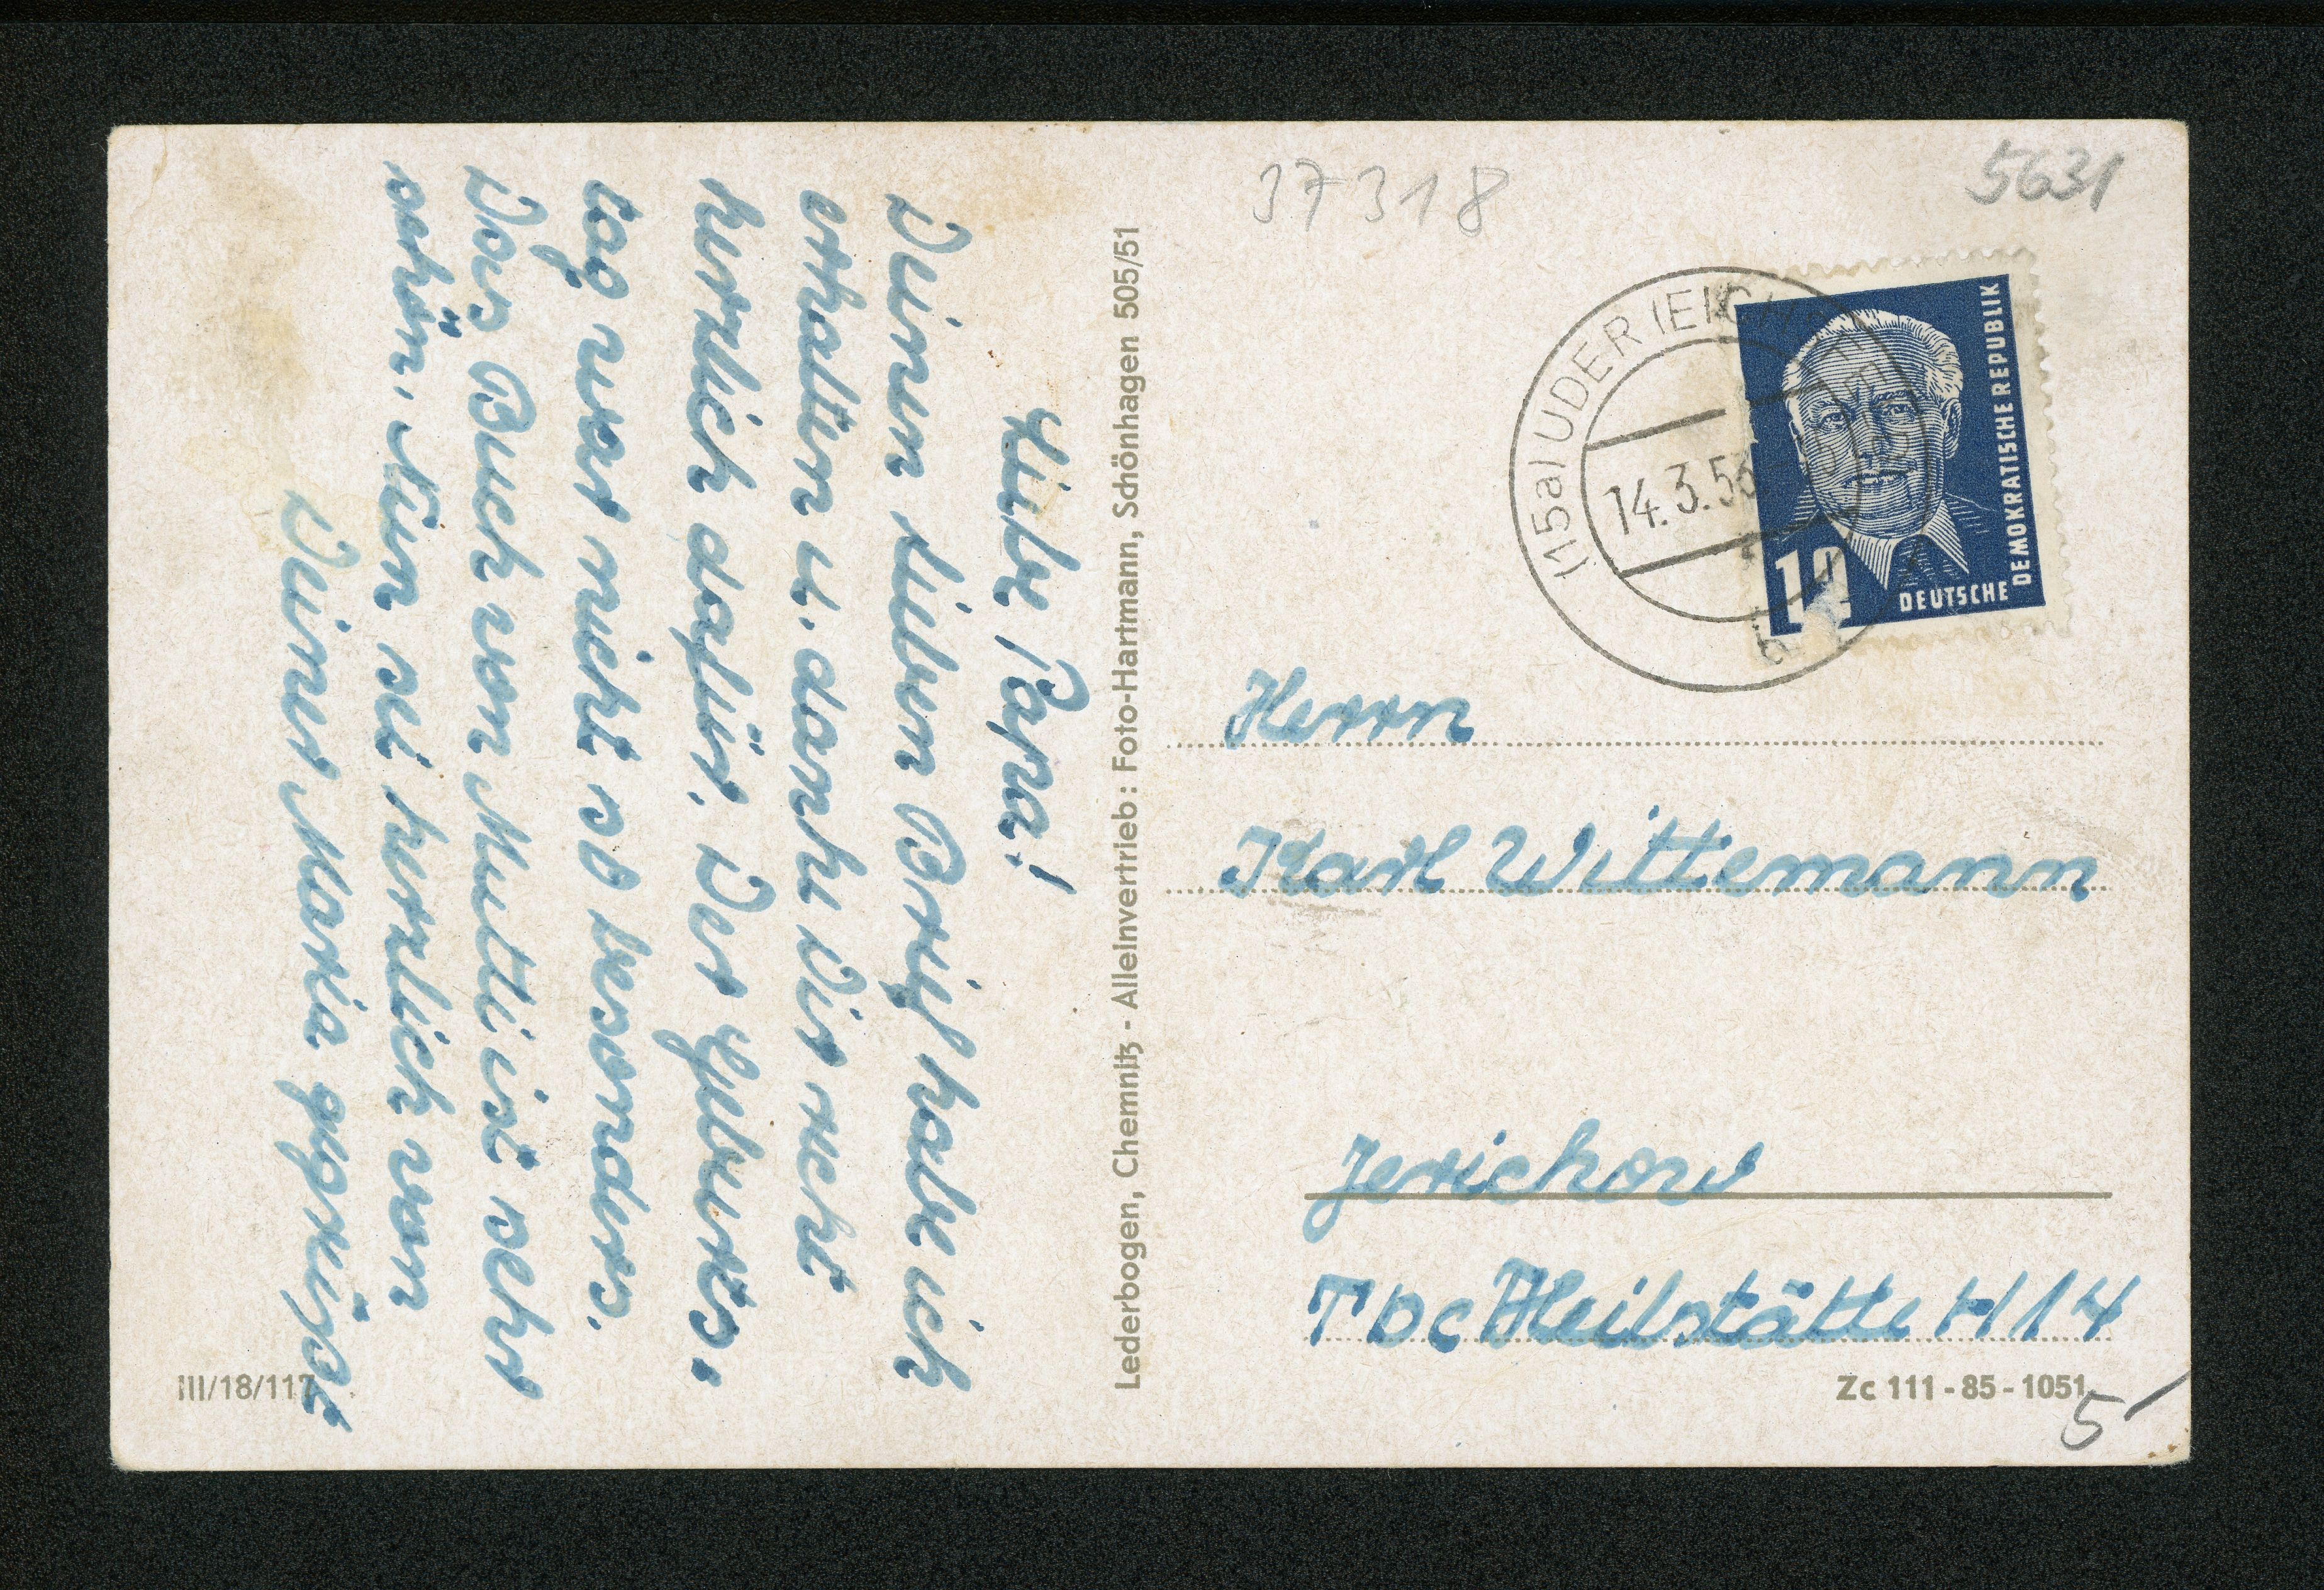 Liebe Papa!
Deinen lieben Brief habe ich
erhalten u. danke Dir recht
herzlich dafür. Der Geburts-
tag war nicht so besonders.
Das Buch von Mutti ist sehr
schön. Nun sei herzlich von
Deiner Maria gegrüßt
III/18/117
Lederbogen, Chemnitz - Alleinvertrieb: Foto-Hartmann, Schönhagen 505/51
37318
5631
(15a) UDER (EICHSFELD)
14.3.53
DEUTSCHE DEMOKRATISCHE REPUBLIK
Herrn
Karl Wittemann
Jerichow
Tbc Heilstätte H 14
Zc 111-85-1051
5